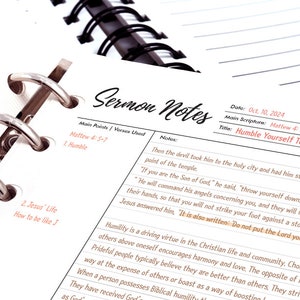 Sermon Notes
Date: Oct. 10, 2024
Main Scripture: Mathew 4:
Title: Humble Yourself T
Main Points / Verses Used
Mathew 4: 5-7
1. Humble
2. Jesus' Life
How to be like J
Notes:
Then the devil took him to the holy city and had him s
point of the temple.
"If you are the Son of God," he said, "throw yourself down.
" He will command his angels concerning you, and they will
their hands, so that you will not strike your foot against a sto
Jesus answered him, "It is also written: 'Do not put the Lord yo
Humility is a driving virtue in the Christian life and community. Chr
others above oneself encourages harmony and love. The opposite of
Prideful people typically believe they are better than others. They str
way at the expense of others or base a way ofboasting
When a person possesses Biblical humility
They have received God's
as God